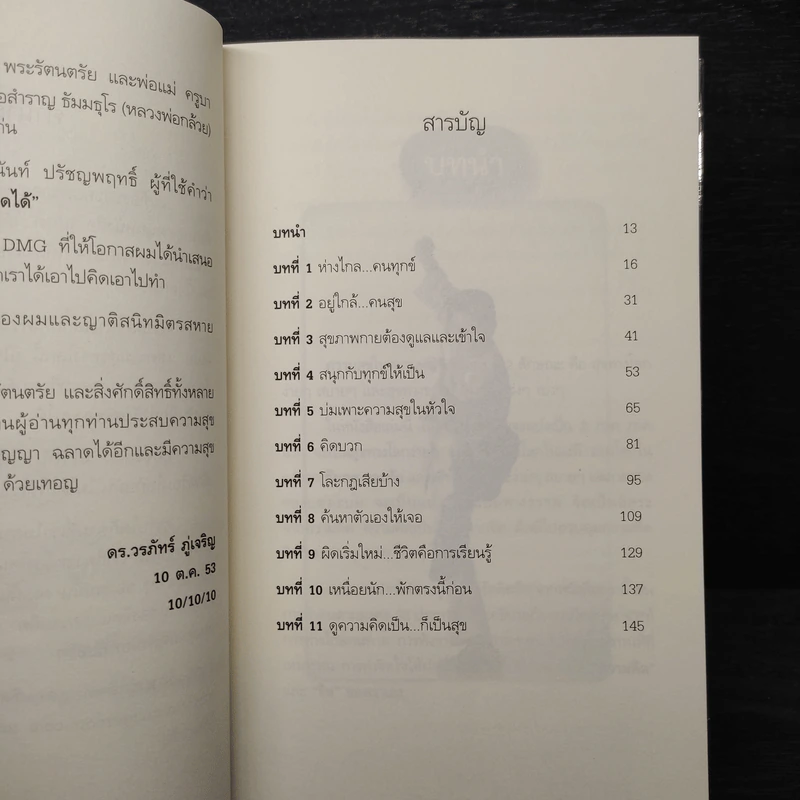 พระรัตนตรัย และพ่อแม่ ครูบา
อสำราญ ธัมมธุโร (หลวงพ่อกล้วย)
ก่น
นันท์ ปรัชญพฤทธิ์ ผู้ที่ใช้คำว่า
ดได้”
DMG ที่ให้โอกาสผมได้นำเสนอ
าเราได้เอาไปคิดเอาไปทำ
องผมและญาติสนิทมิตรสหาย
ัตนตรัย และสิ่งศักดิ์สิทธิ์ทั้งหลาย
นผู้อ่านทุกท่านประสบความสุข
ญญา ฉลาดได้อีกและมีความสุข
ด้วยเทอญ
ดร.วรภัทร์ ภู่เจริญ
10 ต.ค. 53
10/10/10
สารบัญ
บทนำ 13
บทที่ 1 ห่างไกล...คนทุกข์ 16
บทที่ 2 อยู่ใกล้...คนสุข 31
บทที่ 3 สุขภาพกายต้องดูแลและเข้าใจ 41
บทที่ 4 สนุกกับทุกข์ให้เป็น 53
บทที่ 5 บ่มเพาะความสุขในหัวใจ 65
บทที่ 6 คิดบวก 81
บทที่ 7 โละกฎเสียบ้าง 95
บทที่ 8 ค้นหาตัวเองให้เจอ 109
บทที่ 9 ผิดเริ่มใหม่...ชีวิตคือการเรียนรู้ 129
บทที่ 10 เหนื่อยนัก...พักตรงนี้ก่อน 137
บทที่ 11 ดูความคิดเป็น...ก็เป็นสุข 145